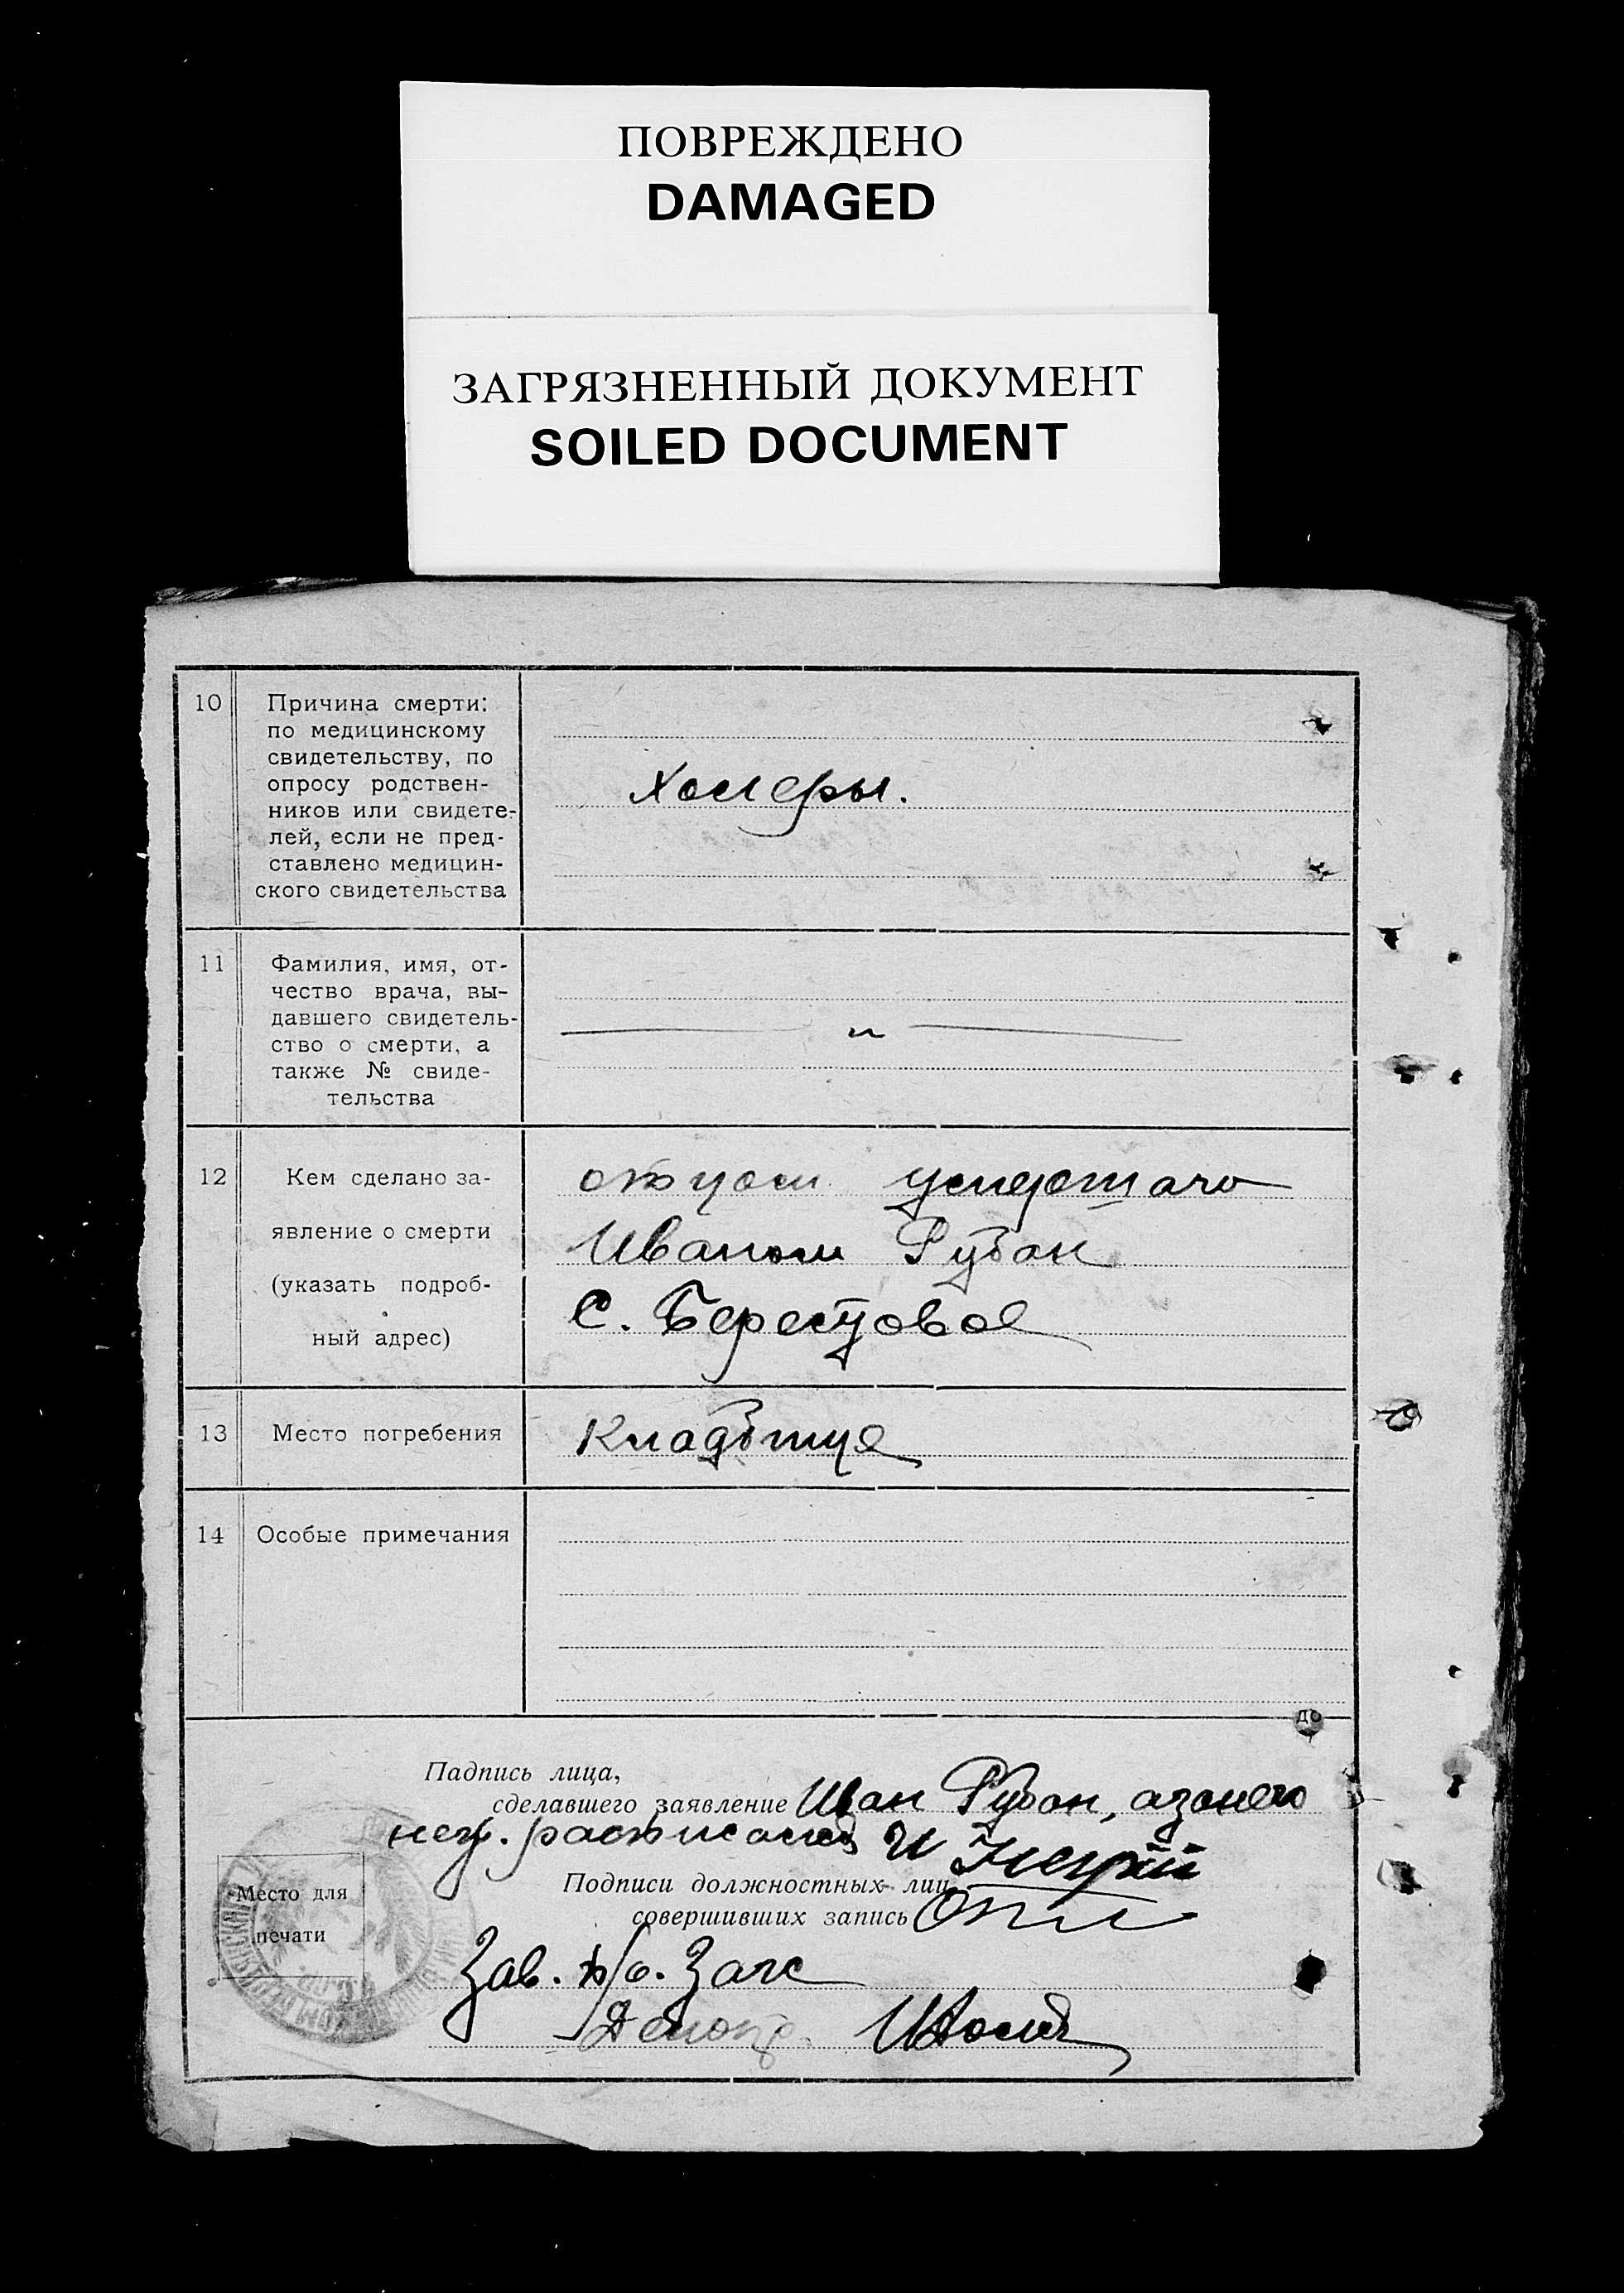 ПОВРЕЖДЕНО
DAMAGED
ЗАГРЯЗНЕННЫЙ ДОКУМЕНТ
SOILED DOCUMENT
10
Причина смерти:
по медицинскому
свидетельству, по
опросу родствен-
ников или свидете-
лей, если не пред-
ставлено медицин-
ского свидетельства
Холеры.
11
Фамилия, имя, от-
чество врача, вы-
давшего свидетель-
ство о смерти, а
также № свиде-
тельства
— „ —
12
Кем сделано за-
явление о смерти
(указать подроб-
ный адрес)
отцом умершаго
Иваном Рубан
С. Берестовое
13
Место погребения
Кладбище
14
Особые примечания
до
Падпись лица,
сделавшего заявление Иван Рубан, азанего
негр. расписался И
Подписи должностных лиц,
совершивших запись
Место для
печати
Зав. п/о. Загс